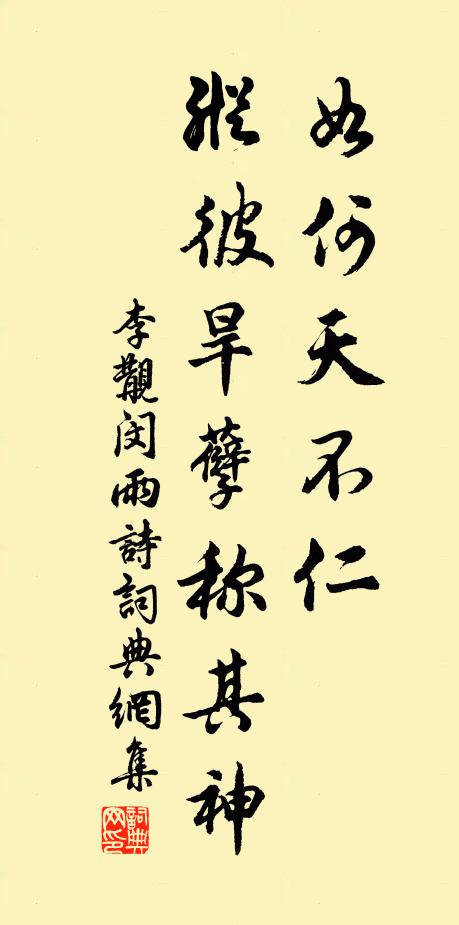 如何天不仁
縱彼旱孽称其神
李覯閔雨詩詞典網集
詞典
网印